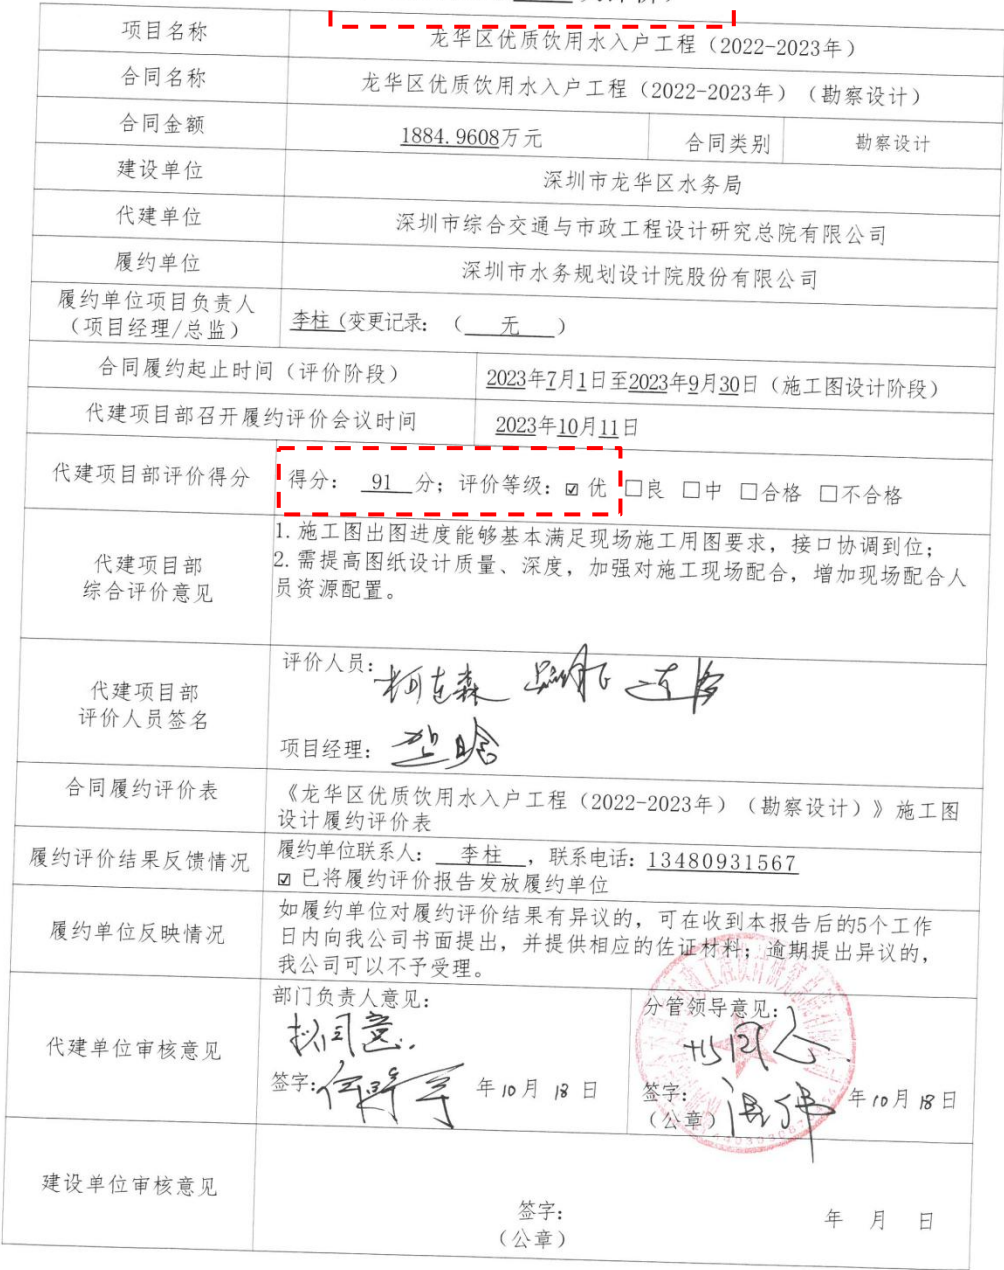 项目名称 龙华区优质饮用水入户工程（2022-2023年）
合同名称 龙华区优质饮用水入户工程（2022-2023年）（勘察设计）
合同金额 1884.9608万元 合同类别 勘察设计
建设单位 深圳市龙华区水务局
代建单位 深圳市综合交通与市政工程设计研究总院有限公司
履约单位 深圳市水务规划设计院股份有限公司
履约单位项目负责人
（项目经理/总监） 李柱（变更记录：（ 无 ）
合同履约起止时间（评价阶段） 2023年7月1日至2023年9月30日（施工图设计阶段）
代建项目部召开履约评价会议时间 2023年10月11日
代建项目部评价得分 得分： 91 分；评价等级：☑优 □良 □中 □合格 □不合格
代建项目部
综合评价意见
1.施工图出图进度能够基本满足现场施工用图要求，接口协调到位；
2.需提高图纸设计质量、深度，加强对施工现场配合，增加现场配合人
员资源配置。
代建项目部
评价人员签名
评价人员：
项目经理：
合同履约评价表
《龙华区优质饮用水入户工程（2022-2023年）（勘察设计）》施工图
设计履约评价表
履约评价结果反馈情况
履约单位联系人： 李柱 ，联系电话：13480931567
☑ 已将履约评价报告发放履约单位
履约单位反映情况
如履约单位对履约评价结果有异议的，可在收到本报告后的5个工作
日内向我公司书面提出，并提供相应的佐证材料；逾期提出异议的，
我公司可以不予受理。
代建单位审核意见
部门负责人意见：
拟同意.
签字： 年10月18日
分管领导意见：
拟同意.
签字：
（公章） 年10月18日
建设单位审核意见
签字：
（公章） 年 月 日